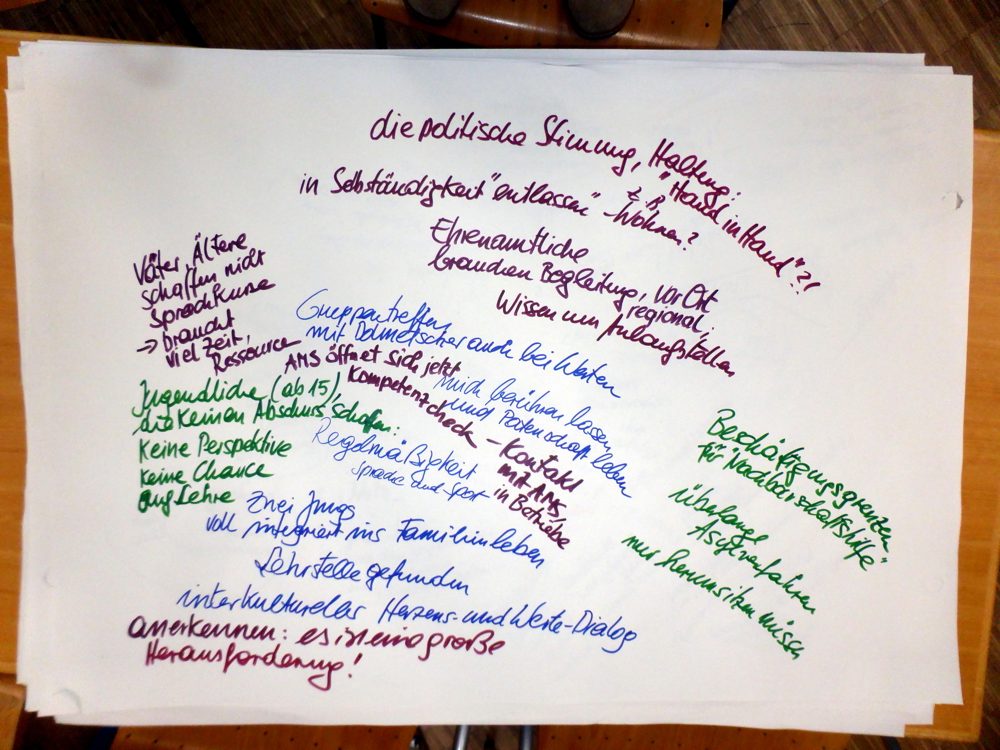 die politische Stimmung, Haltung:
"Hand in Hand"?!
in Selbständigkeit "entlassen" - z.B. Wohnen?
Ehrenamtliche
brauchen Begleitung, vor Ort
regional,
Wissen um Anlaufstellen
Väter, Ältere
schaffen nicht
Sprachkurse
→ braucht
viel Zeit,
Ressource
Gruppentreffen
mit Dolmetscher auch bei Werten
AMS öffnet sich jetzt
Kompetenzcheck - Kontakt
mit AMS,
in Betriebe
mich berühren lassen
und Patenschaft leben
Jugendliche (ab 15),
die keinen Abschluss schaffen:
keine Perspektive
keine Chance
auf Lehre
Regelmäßigkeit
Sprache und Sport
Zwei Jungs
voll integriert ins Familienleben
Lehrstelle gefunden
interkultureller Herzens- und Werte-Dialog
anerkennen: es ist eine große
Herausforderung!
Beschäftigungsgrenzen
für "Nachbarschaftshilfe"
überlange
Asylverfahren
nur herumsitzen müssen